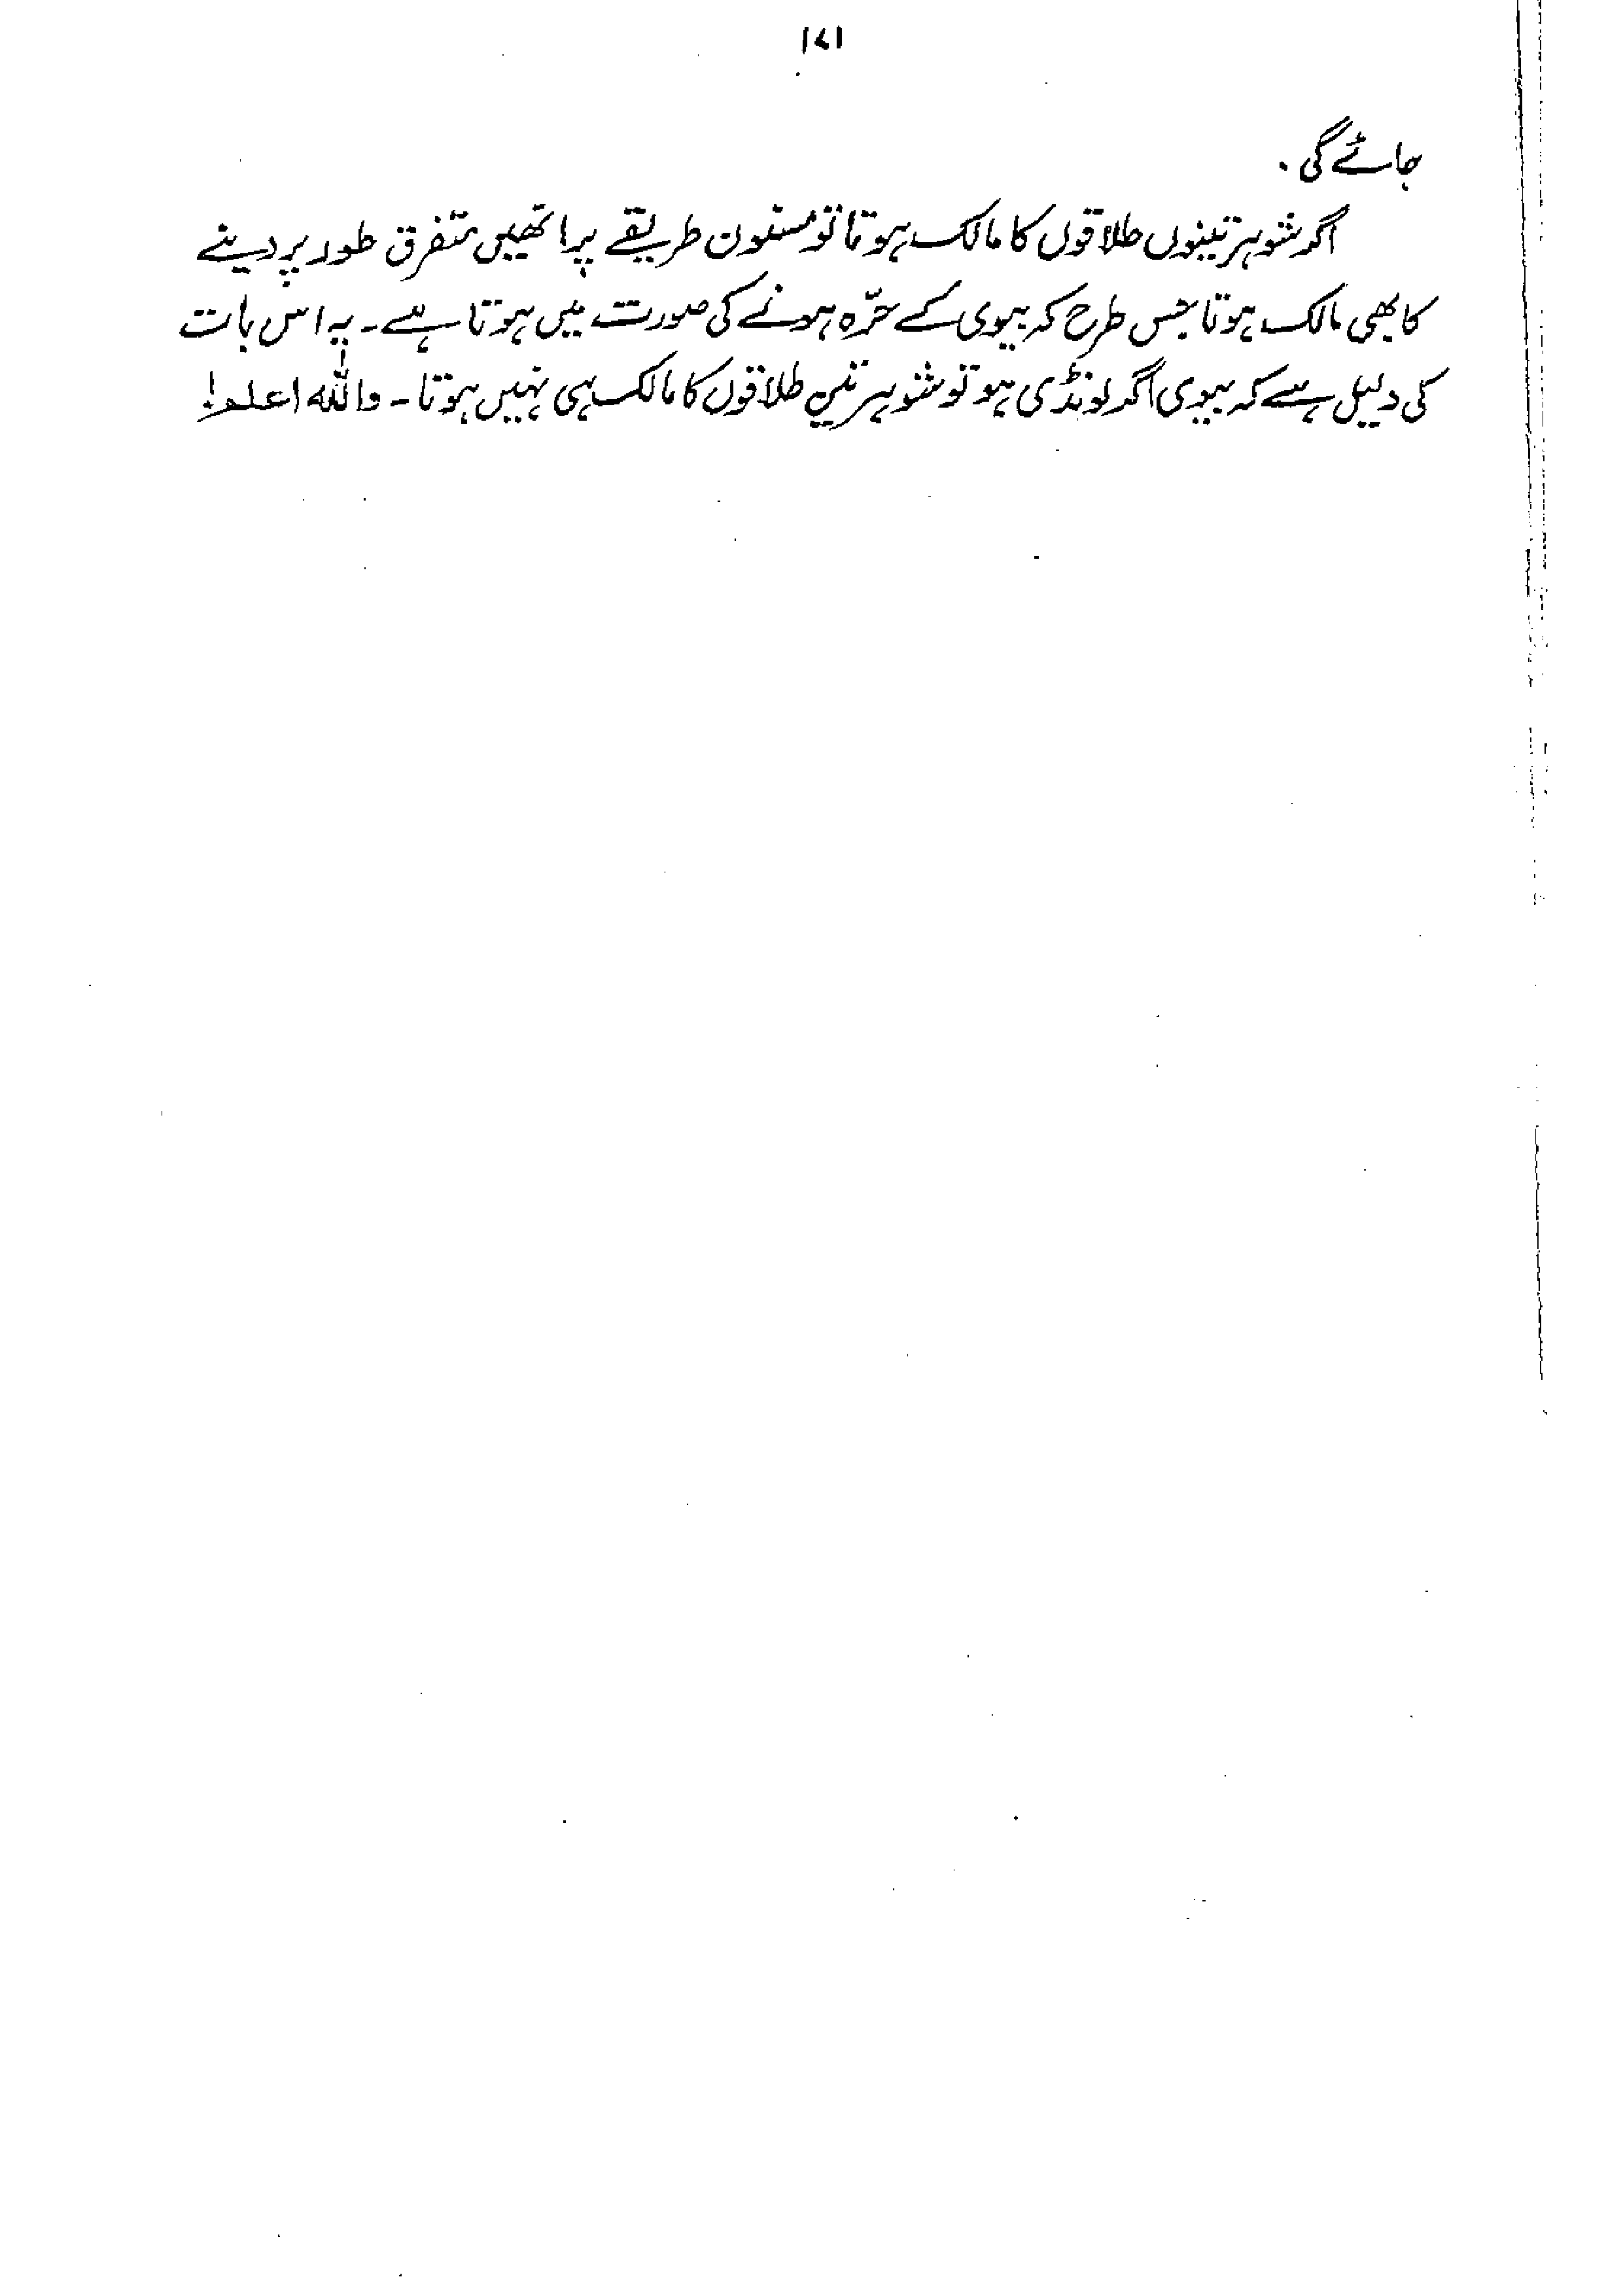 ۱۷۱
جائے گی.
اگر شوہر تینوں طلاقوں کا مالک ہوتا تو مسنون طریقے پر انھیں متفرق طور پر دینے
کا بھی مالک ہوتا جس طرح کہ بیوی کے حرّہ ہونے کی صورت میں ہوتا ہے۔ یہ اس بات
کی دلیل ہے کہ بیوی اگر لونڈی ہو تو شوہر تین طلاقوں کا مالک ہی نہیں ہوتا۔ واللہ اعلم!